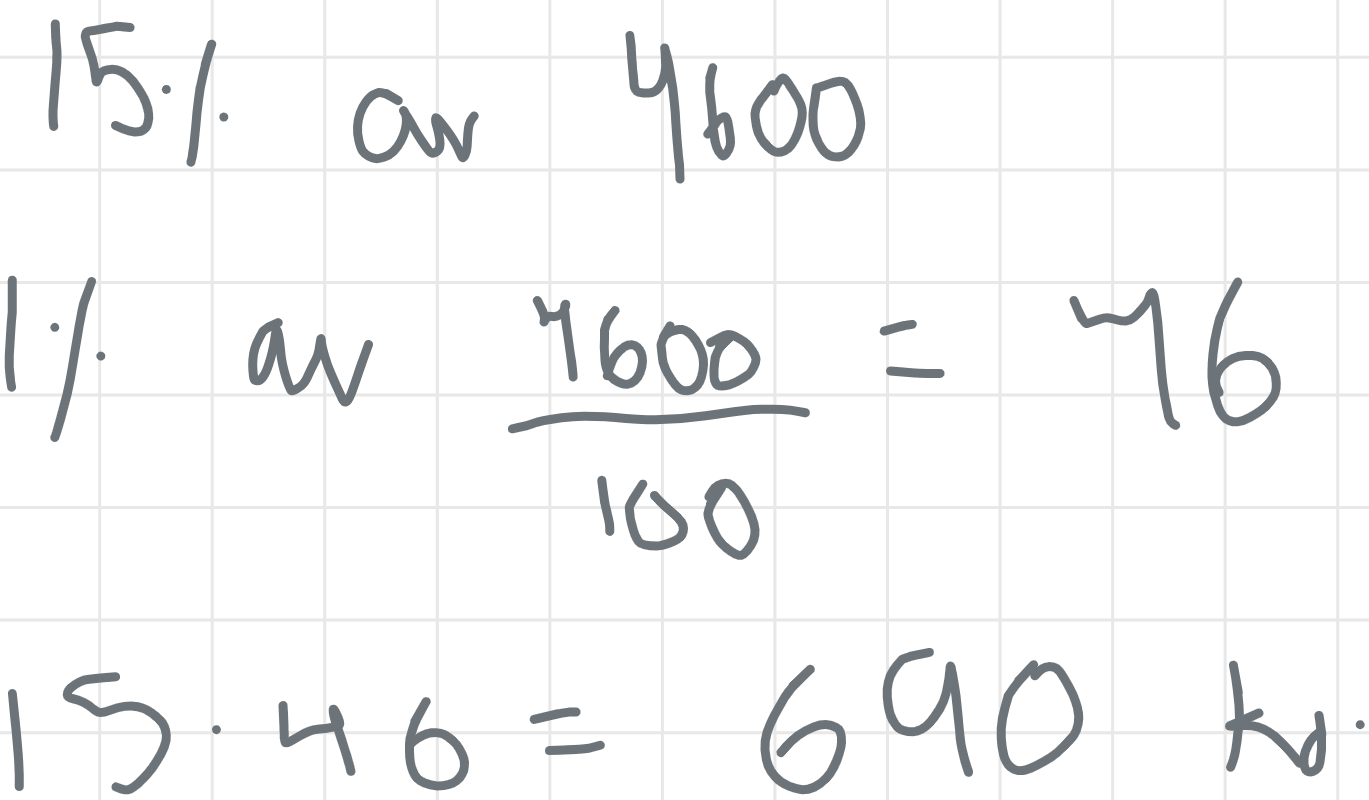 15% av 4600
1% av 4600/100 = 46
15 · 46 = 690 kr.